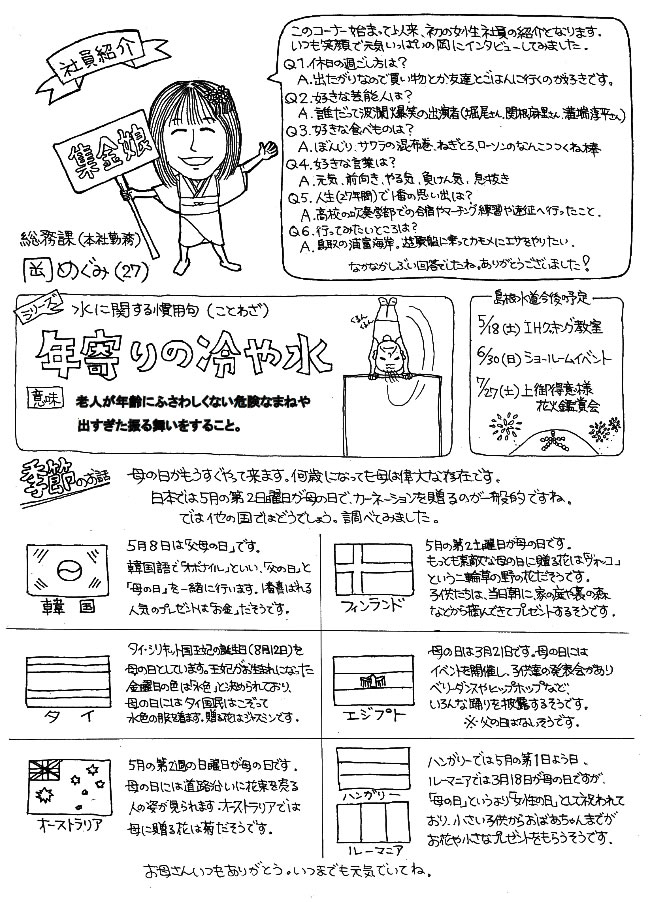 社員紹介
集金娘
総務課(本社勤務)
岡めぐみ(27)
このコーナー始まって以来、初の女性社員の紹介となります。
いつも笑顔で元気いっぱいの岡にインタビューしてみました。
Q1.休日の過ごし方は?
A.出たがりなので買い物とか友達とごはんに行くのが好きです。
Q2.好きな芸能人は?
A.誰だって波瀾爆笑の出演者(堀尾さん、関根麻里さん、溝端淳平さん)
Q3.好きな食べものは?
A.ぼんじり、サワラの昆布巻、ねぎとろ、ローソンのなんこつつくね棒
Q4.好きな言葉は?
A.元気、前向き、やる気、負けん気、息抜き
Q5.人生(27年間)で1番の思い出は?
A.高校の吹奏学部での合宿やマーチング練習や遠征へ行ったこと。
Q6.行ってみたいところは?
A.鳥取の浦富海岸。遊覧船に乗ってカモメにエサをやりたい。
なかなかしぶい回答でしたね。ありがとうございました!
シリーズ 水に関する慣用句(ことわざ)
年寄りの冷や水
意味
老人が年齢にふさわしくない危険なまねや
出すぎた振る舞いをすること。
ぐるん
ぐるん
島根水道今後の予定
5/18(土) IHスキング教室
6/30(日) ショールームイベント
7/27(土) 上御得意様
花火鑑賞会
季節のお話
母の日がもうすぐやって来ます。何歳になっても母は偉大な存在です。
日本では5月の第2日曜日が母の日で、カーネーションを贈るのが一般的ですね。
では他の国ではどうでしょう。調べてみました。
韓国
5月8日は「父母の日」です。
韓国語で「オボイナル」といい、「父の日」と
「母の日」を一緒に行います。1番喜ばれる
人気のプレゼントは「お金」だそうです。
フィンランド
5月の第2土曜日が母の日です。
もっとも素敵な母の日に贈る花は「ヴォッコ」
という二輪草の野の花だそうです。
子供たちは、当日朝に、家の庭や裏の森
などから摘んできてプレゼントするそうです。
タイ
タイ・シリキット国王妃の誕生日(8月12日)を
母の日としています。王妃がお生まれになった
金曜日の色は「水色」と決められており、
母の日にはタイ国民はこぞって
水色の服を着ます。贈る花はジャスミンです。
エジプト
母の日は3月21日です。母の日には
イベントを開催し、子供達の発表会があり
ベリーダンスやヒップホップなど、
いろんな踊りを披露するそうです。
※父の日はないそうです。
オーストラリア
5月の第2週の日曜日が母の日です。
母の日には道路沿いに花束を売る
人の姿が見られます。オーストラリアでは
母に贈る花は菊だそうです。
ハンガリー
ルーマニア
ハンガリーでは5月の第1日よう日、
ルーマニアでは3月18日が母の日ですが、
「母の日」というより「女性の日」として祝われて
おり、小さい子供からおばあちゃんまでが
お花や小さなプレゼントをもらうそうです。
お母さんいつもありがとう。いつまでも元気でいてね。